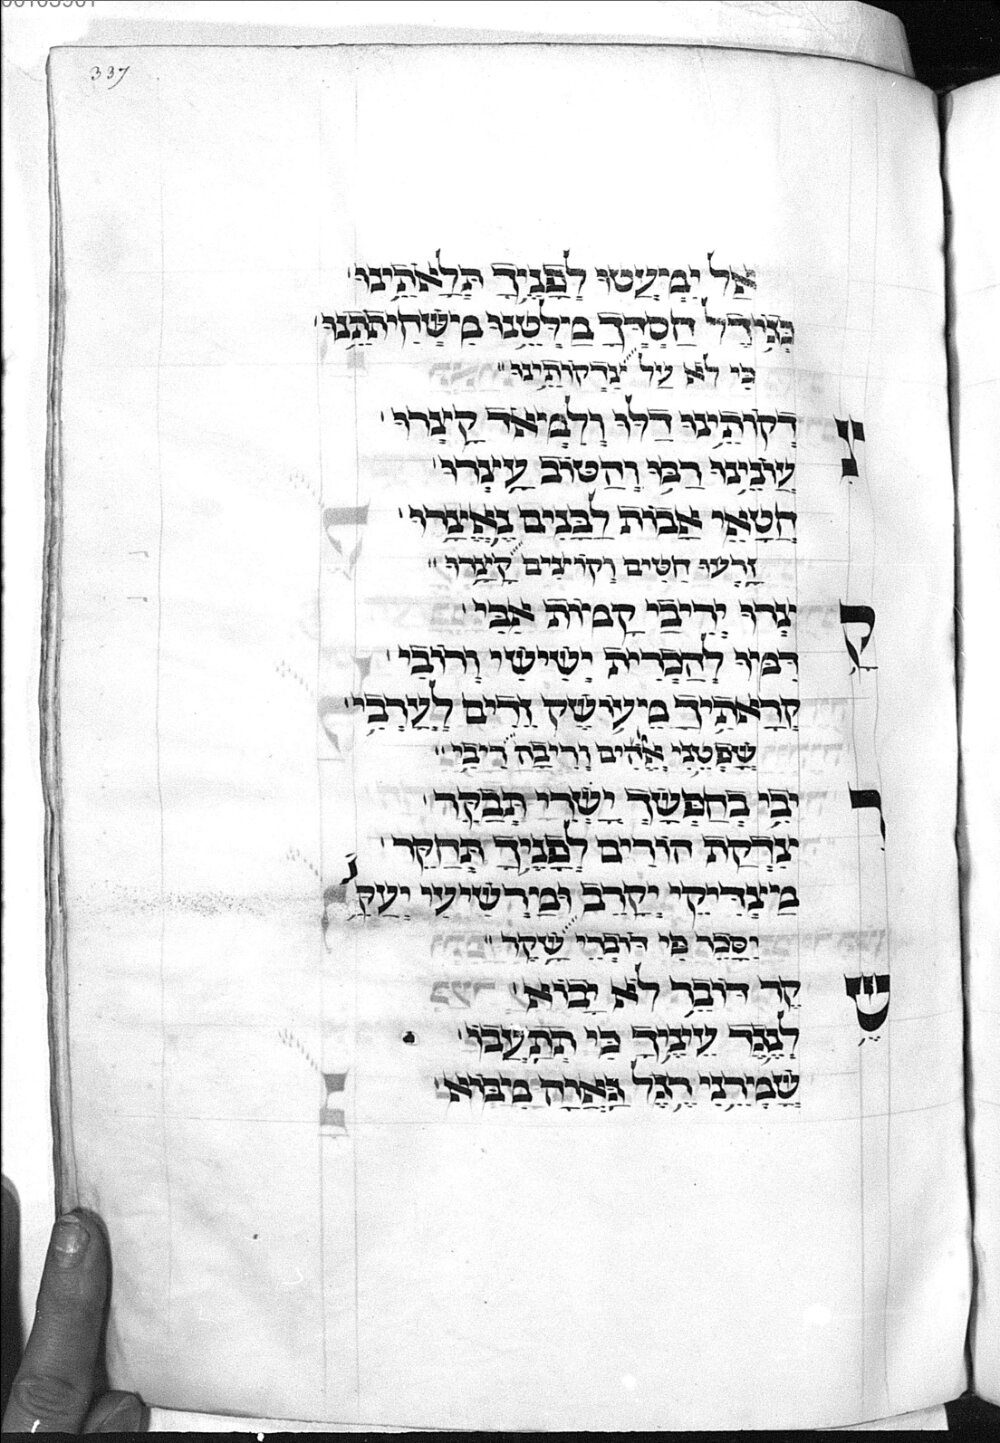 337
אַל יִמְעֲטוּ לְפָנֶיךָ תְּלָאֹתֵינוּ
בְּגֹדֶל חַסְדְּךָ מַלְּטֵנוּ מִשְּׁחִיתֹתֵנוּ
כִּי לֹא עַל צִדְקוֹתֵינוּ
צ דְקוֹתֵינוּ דַלּוּ וְלִמְאֹד קָצָרוּ
עֲוֹנֵינוּ רַבּוּ וְהַטּוֹב עָצָרוּ
חֲטָאֵי אָבוֹת לַבָּנִים נֶאֱצָרוּ
זָרְעוּ חִטִּים וְקוֹצִים קָצָרוּ
ק צְרוּ יְרִיבַי קָמוֹת אִבִּי
דִּמּוּ לְהַכְרִית יְשִׁישַׁי וְרוֹבַי
קְרָאתִיךָ מֵעוֹשֵׁק זֵדִים לְעָרְבִי
שָׁפְטֵנִי אֱלֹהִים וְרִיבָה רִיבִי
ר יבִי בְּחַפֶּשְׂךָ יָשְׁרִי תְּבַקֵּר
צִדְקַת הוֹרִים לְפָנֶיךָ תֶּחְקַר
מַצְדִּיקַי יְקָרֵב וּמַרְשִׁיעַי יְעַקֵּר
יִסָּכֵר פִּי דוֹבְרֵי שֶׁקֶר
ש קֶר דּוֹבֵר לֹא יָבוֹא
לְנֶגֶד עֵינֶיךָ כִּי תְתַעֲבוֹ
שָׁמְרֵנִי רֶגֶל גַּאֲוָה מִבּוֹא